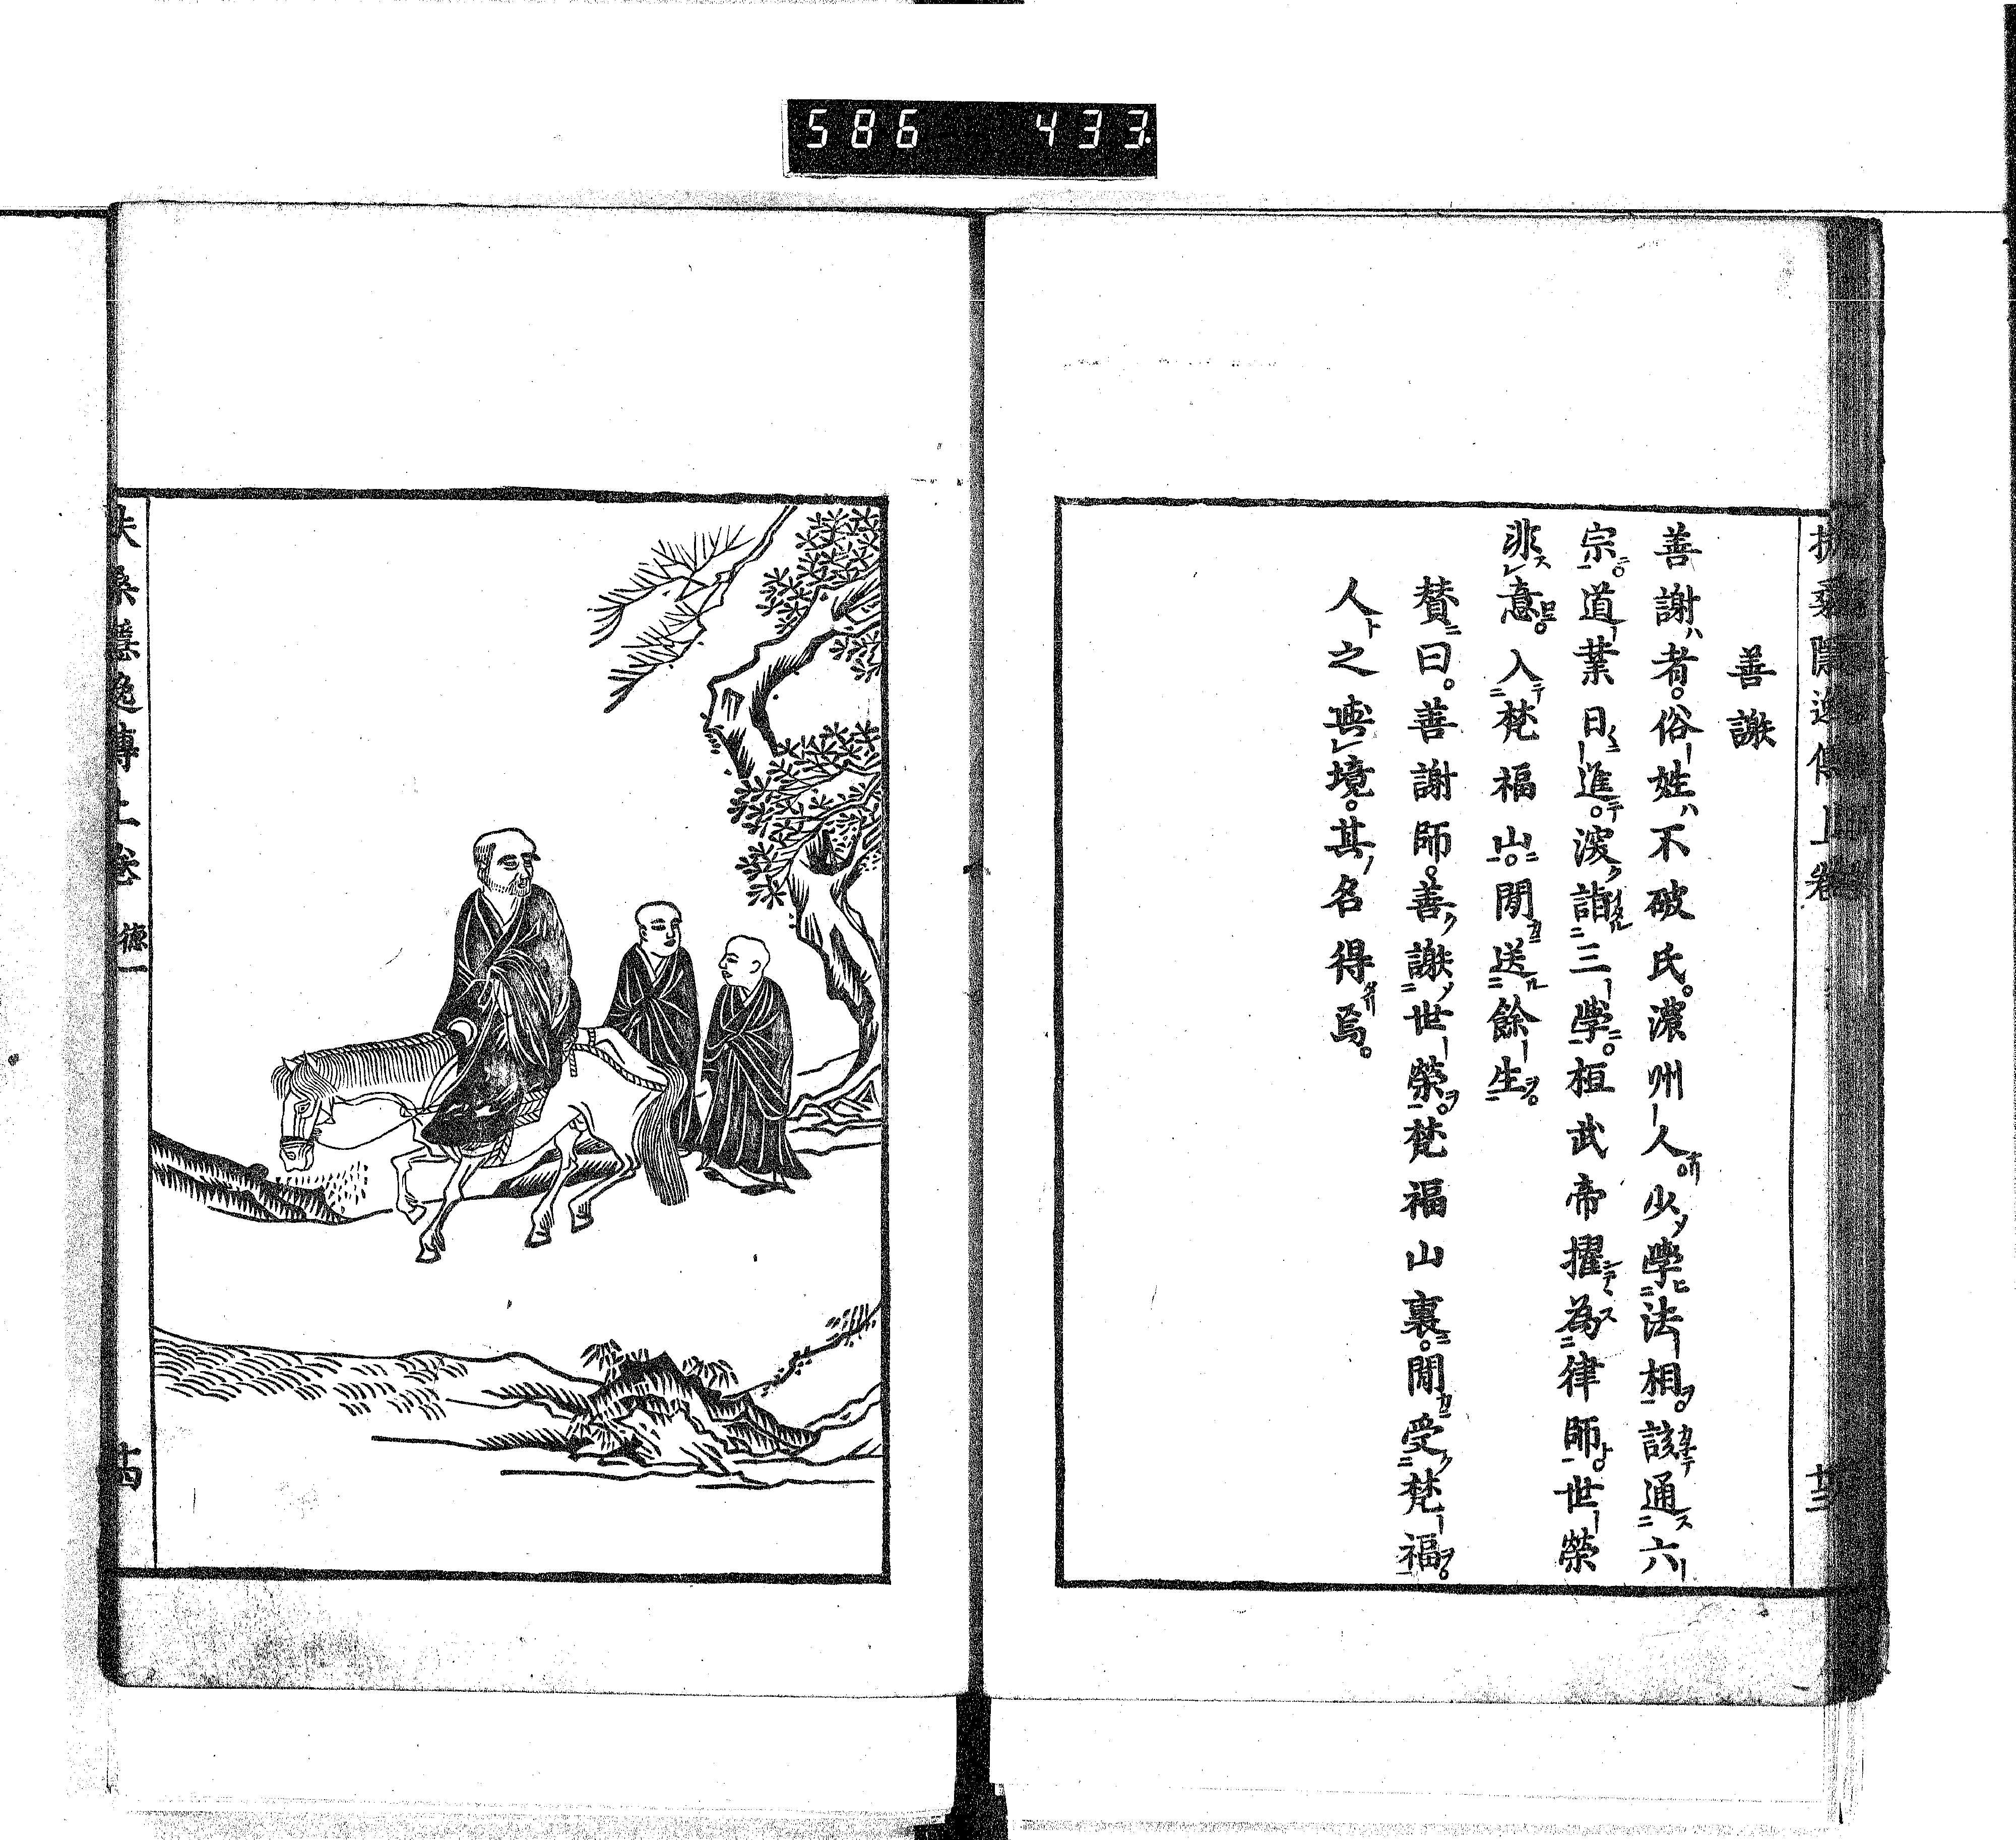 586 433
扶桑隱逸傳上卷
善謝
善謝者。俗姓不破氏。濃州人。少學法相。該通六
宗。道業日進。深詣三學。桓武帝擢為律師。世榮
非意。入梵福山。閒送餘生。
賛曰。善謝師。善謝世榮。梵福山裏。閒受梵福。
人之與境。其名得焉。
扶桑隱逸傳上卷 德一